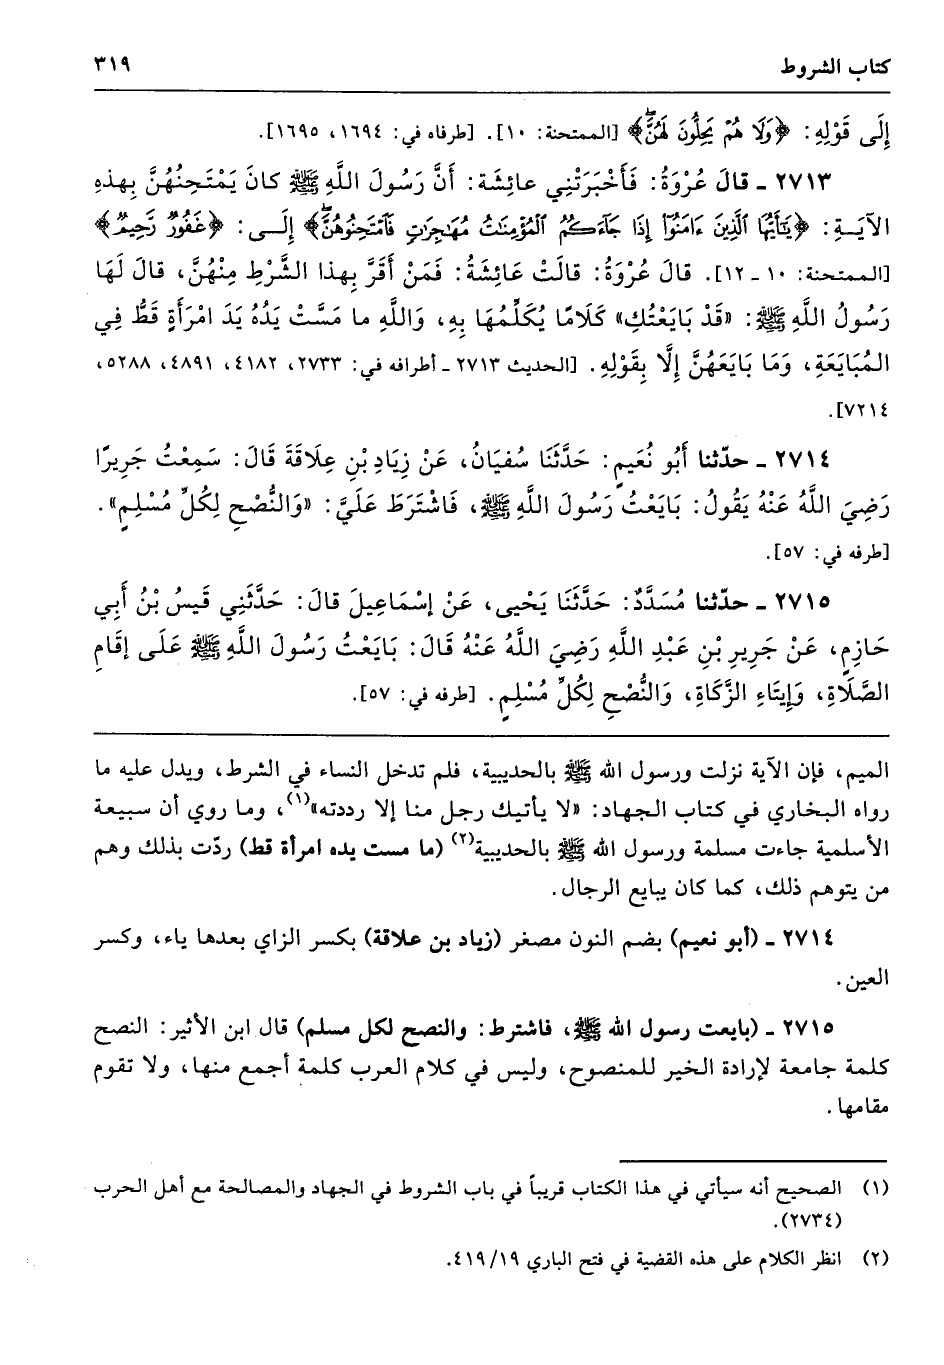 كتاب الشروط ٣١٩
إِلَى قَوْلِهِ: ﴿وَلَا هُمْ يَحِلُّونَ لَهُنَّ﴾ [الممتحنة: ١٠]. [طرفاه في: ١٦٩٤، ١٦٩٥].
٢٧١٣ ـ قالَ عُرْوَةُ: فَأَخْبَرَتْنِي عائِشَة: أَنَّ رَسُولَ اللَّهِ ﷺ كانَ يَمْتَحِنُهُنَّ بِهذهِ
الآيَـةِ: ﴿يَٰٓأَيُّهَا ٱلَّذِينَ ءَامَنُوٓا۟ إِذَا جَآءَكُمُ ٱلْمُؤْمِنَٰتُ مُهَٰجِرَٰتٍ فَٱمْتَحِنُوهُنَّ﴾ إِلَـى: ﴿غَفُورٌ رَّحِيمٌ﴾
[الممتحنة: ١٠ ـ ١٢]. قالَ عُرْوَةُ: قالَتْ عَائِشَةُ: فَمَنْ أَقَرَّ بِهذا الشَّرْطِ مِنْهُنَّ، قالَ لَهَا
رَسُولُ اللَّهِ ﷺ: «قَدْ بَايَعْتُكِ» كَلَامًا يُكَلِّمُهَا بِهِ، وَاللَّهِ ما مَسَّتْ يَدُهُ يَدَ امْرَأَةٍ قَطُّ فِي
المُبَايَعَةِ، وَمَا بَايَعَهُنَّ إِلَّا بِقَوْلِهِ. [الحديث ٢٧١٣ ـ أطرافه في: ٢٧٣٣، ٤١٨٢، ٤٨٩١، ٥٢٨٨،
٧٢١٤].
٢٧١٤ ـ حدّثنا أَبُو نُعَيمٍ: حَدَّثَنَا سُفيَانُ، عَنْ زِيَادِ بْنِ عِلَاقَةَ قَالَ: سَمِعْتُ جَرِيرًا
رَضِيَ اللَّهُ عَنْهُ يَقُولُ: بَايَعْتُ رَسُولَ اللَّهِ ﷺ، فَاشْتَرَطَ عَلَيَّ: «وَالنُّصْحِ لِكُلِّ مُسْلِمٍ».
[طرفه في: ٥٧].
٢٧١٥ ـ حدّثنا مُسَدَّدٌ: حَدَّثَنَا يَحْيى، عَنْ إِسْمَاعِيلَ قالَ: حَدَّثَنِي قَيسُ بْنُ أَبِي
حَازِمٍ، عَنْ جَرِيرِ بْنِ عَبْدِ اللَّهِ رَضِيَ اللَّهُ عَنْهُ قَالَ: بَايَعْتُ رَسُولَ اللَّهِ ﷺ عَلَى إِقَامِ
الصَّلَاةِ، وَإِيتَاءِ الزَّكَاةِ، وَالنُّصْحِ لِكُلِّ مُسْلِمٍ. [طرفه في: ٥٧].
الميم، فإن الآية نزلت ورسول الله ﷺ بالحديبية، فلم تدخل النساء في الشرط، ويدل عليه ما
رواه البخاري في كتاب الجهاد: «لا يأتيك رجل منا إلا رددته»(١)، وما روي أن سبيعة
الأسلمية جاءت مسلمة ورسول الله ﷺ بالحديبية(٢) (ما مست يده امرأة قط) ردّت بذلك وهم
من يتوهم ذلك، كما كان يبايع الرجال.
٢٧١٤ ـ (أبو نعيم) بضم النون مصغر (زياد بن علاقة) بكسر الزاي بعدها ياء، وكسر
العين.
٢٧١٥ ـ (بايعت رسول الله ﷺ، فاشترط: والنصح لكل مسلم) قال ابن الأثير: النصح
كلمة جامعة لإرادة الخير للمنصوح، وليس في كلام العرب كلمة أجمع منها، ولا تقوم
مقامها.
(١) الصحيح أنه سيأتي في هذا الكتاب قريباً في باب الشروط في الجهاد والمصالحة مع أهل الحرب
(٢٧٣٤).
(٢) انظر الكلام على هذه القضية في فتح الباري ١٩/ ٤١٩.